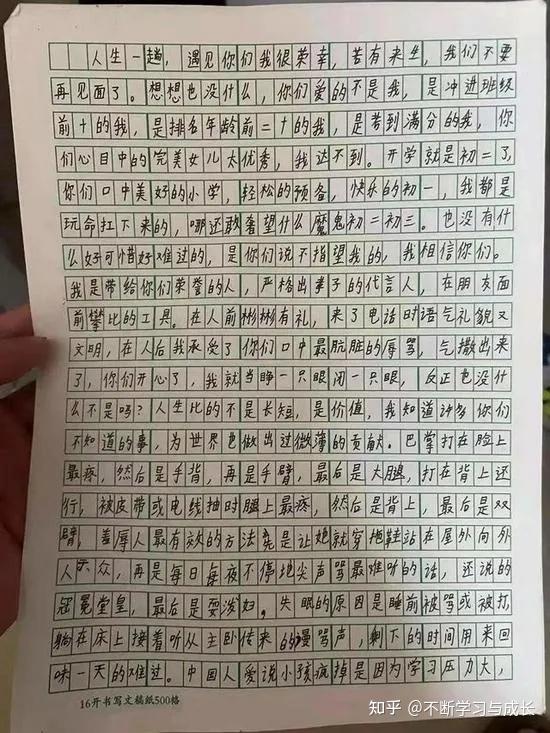 人生一趟，遇见你们我很荣幸，若有来生，我们不要
再见面了。想想也没什么，你们爱的不是我，是冲进班级
前十的我，是排名年龄前二十的我，是考到满分的我，你
们心目中的完美女儿太优秀，我达不到。开学就是初二了，
你们口中美好的小学，轻松的预备，快乐的初一，我都是
玩命扛下来的，哪还敢奢望什么魔鬼初二初三。也没有什
么好可惜好难过的，是你们说不指望我的，我相信你们。
我是带给你们荣誉的人，严格出孝子的代言人，在朋友面
前攀比的工具。在人前彬彬有礼，来了电话时语气礼貌又
文明，在人后我承受了你们口中最肮脏的辱骂，气撒出来
了，你们开心了，我就当睁一只眼闭一只眼，反正也没什
么不是吗？人生比的不是长短，是价值，我知道许多你们
不知道的事，为世界也做出过微薄的贡献。巴掌打在脸上
最疼，然后是手背，再是手臂，最后是大腿，打在背上还
行，被皮带或电线抽时腿上最疼，然后是背上，最后是双
臂，羞辱人最有效的方法竟是让她就穿拖鞋站在屋外向外
人示众，再是每日每夜不停地尖声骂最难听的话，还说的
冠冕堂皇，最后是耍泼妇。失眠的原因是睡前被骂或被打，
躺在床上接着听从主卧传来的谩骂声，剩下的时间用来回
味一天的难过。中国人爱说小孩疯掉是因为学习压力大，
16开书写文稿纸500格
知乎 @不断学习与成长